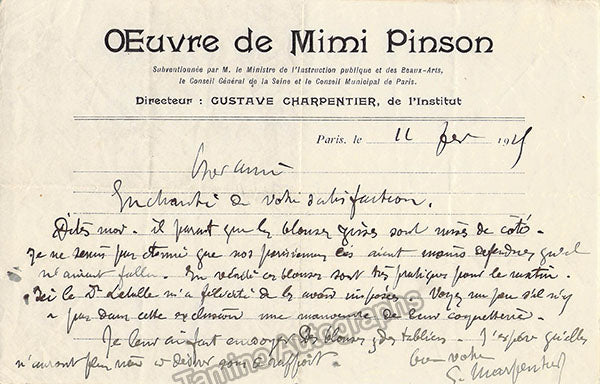 Œuvre de Mimi Pinson
Subventionnée par M. le Ministre de l'Instruction publique et des Beaux-Arts,
le Conseil Général de la Seine et le Conseil Municipal de Paris.
Directeur : GUSTAVE CHARPENTIER, de l'Institut
Paris, le 11 fev 1915
Cher ami
Enchanté de votre satisfaction.
Dites moi. il parait que les blouses grises sont mises de côté.
Je ne serais pas étonné que nos parisiennes les aient moins défendues qu'il
n'aurait fallu. En réalité ces blouses sont très pratiques pour le matin.
Ici le Dr Letulle m'a félicité de les avoir imposées. Voyez un peu s'il n'y
a pas dans cette exclusion une manœuvre de leur coquetterie.
Je leur ai fait envoyer des blouses, des tabliers. J'espère qu'elles
n'auront plus rien à désirer sous ce rapport. Bien votre
G. Charpentier
Tamino Autographs